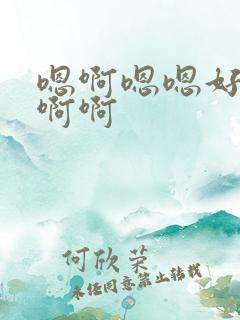 嗯啊嗯嗯好
啊啊
何欣荣
未经同意禁止转载